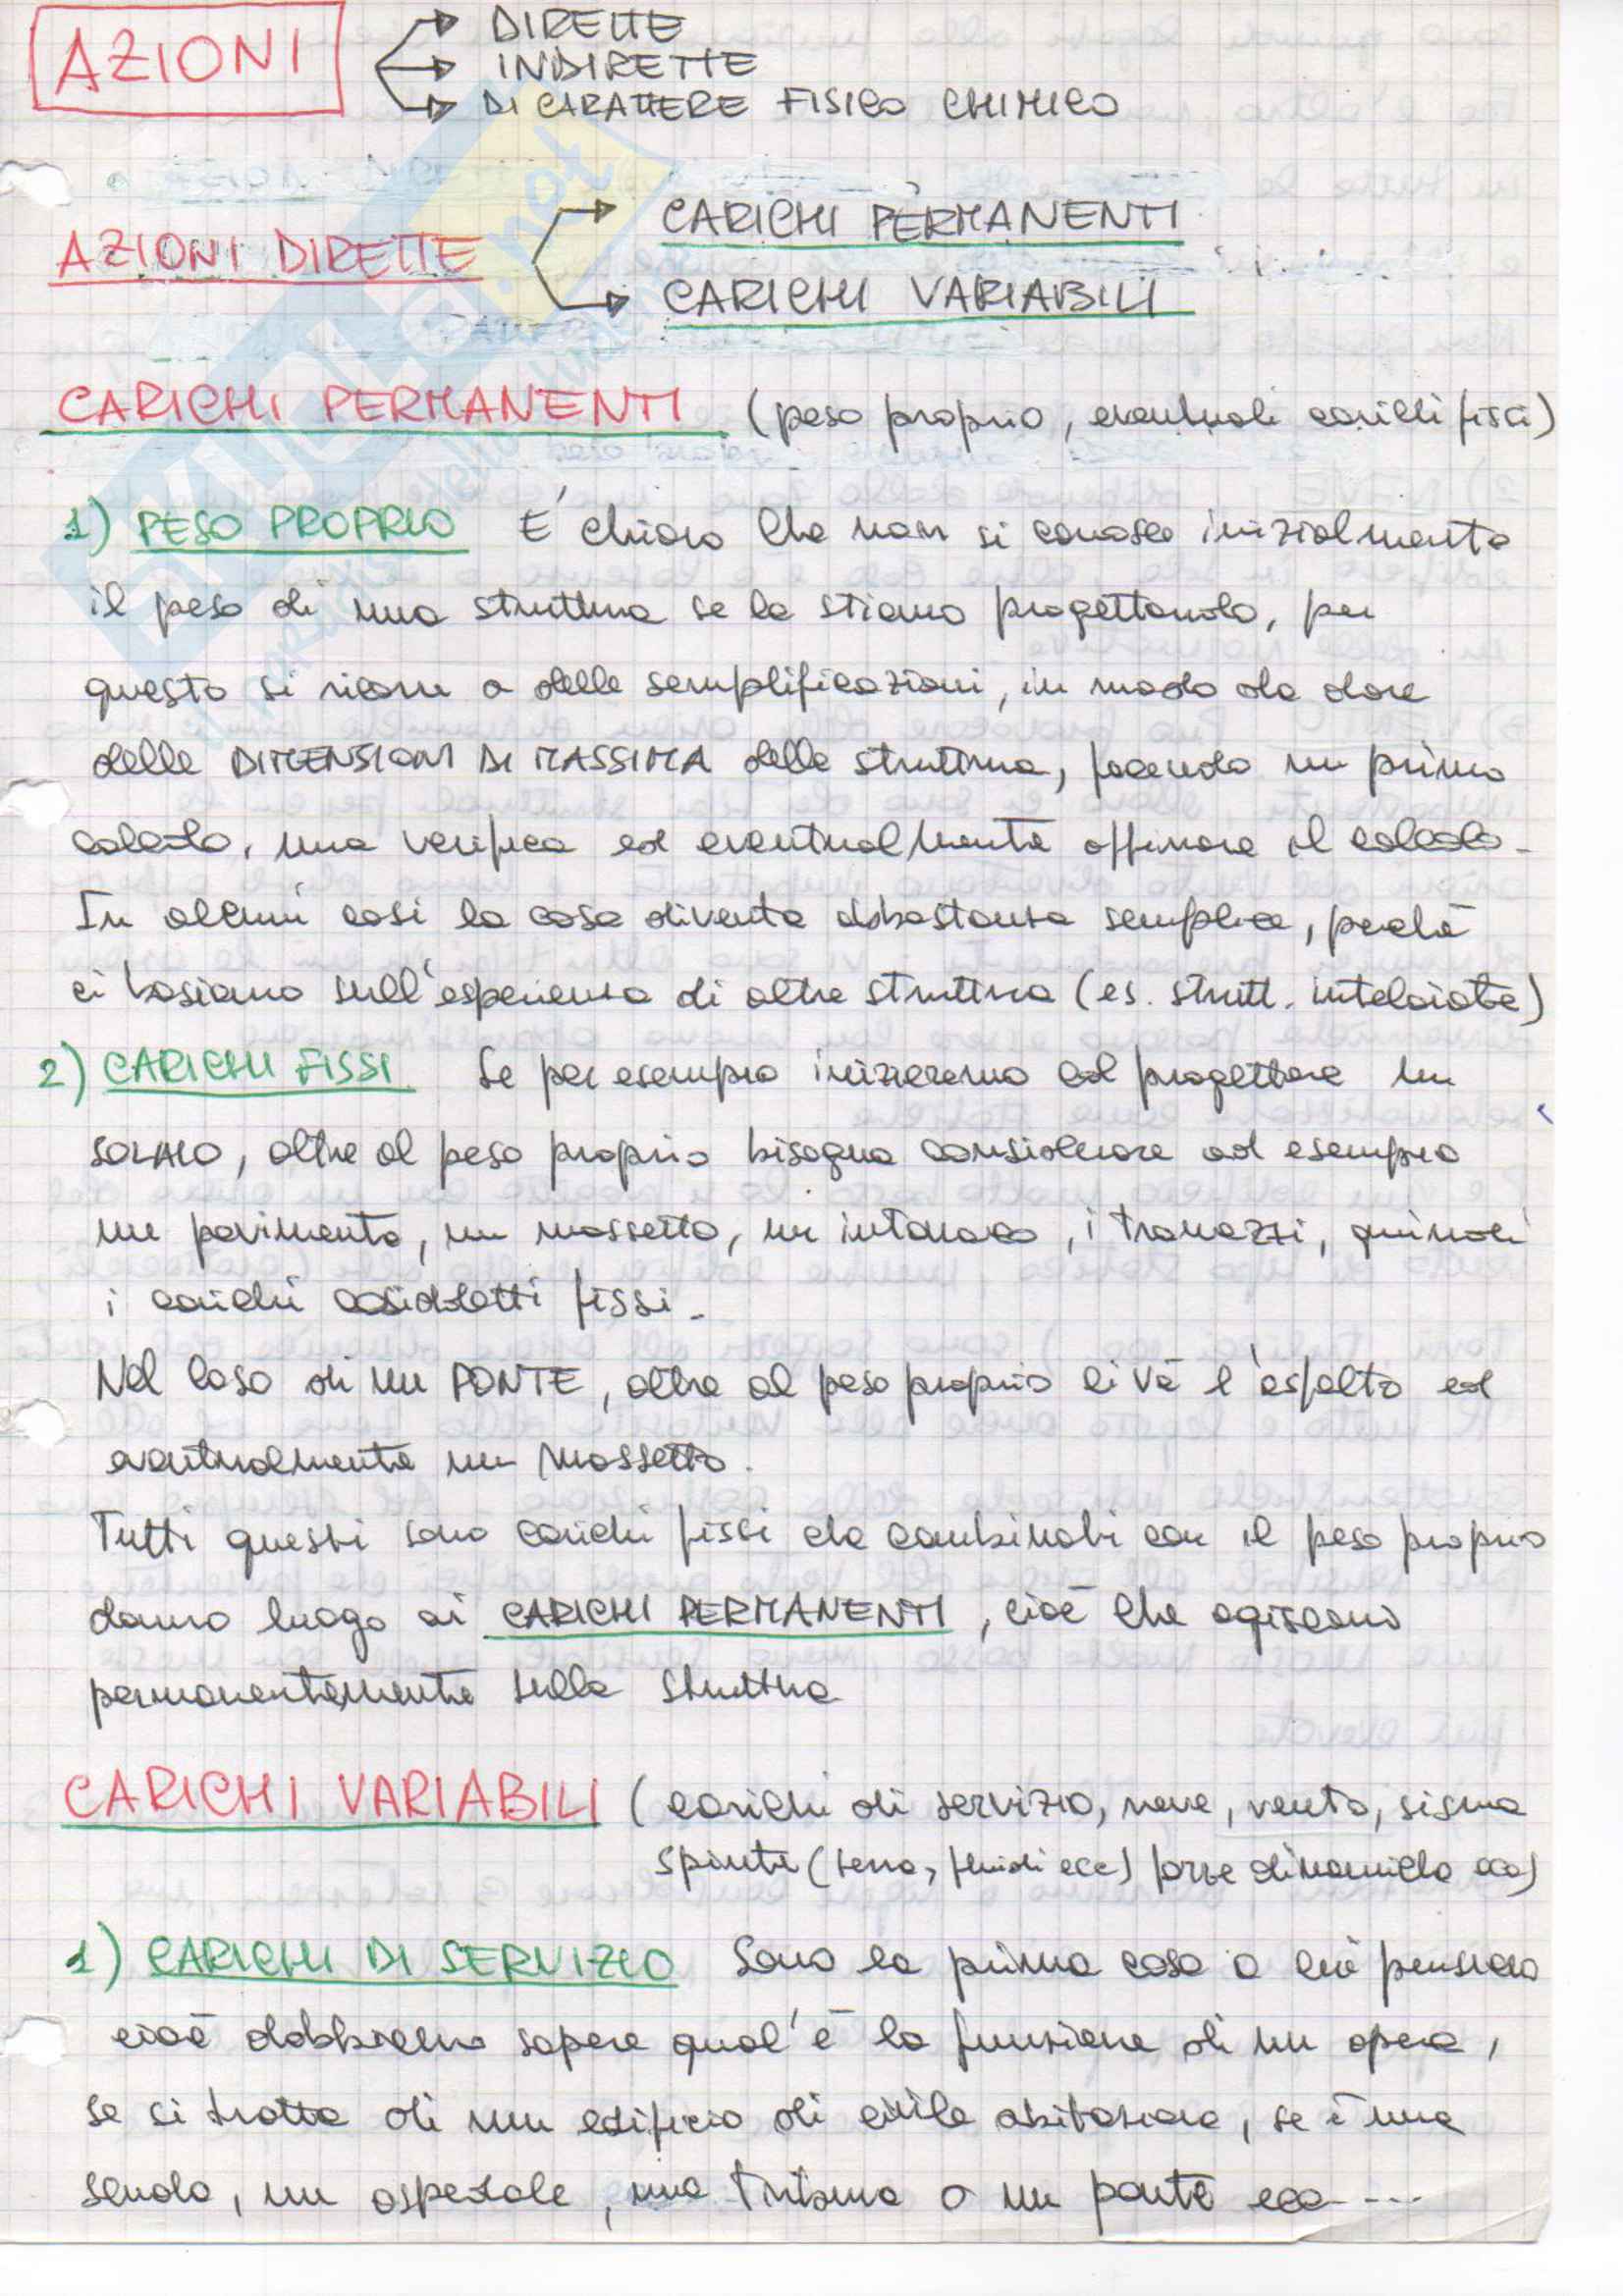 AZIONI
DIRETTE
INDIRETTE
DI CARATTERE FISICO CHIMICO
AZIONI DIRETTE
CARICHI PERMANENTI
CARICHI VARIABILI
CARICHI PERMANENTI (peso proprio, eventuali carichi fissi)
1) PESO PROPRIO E' chiaro che non si conosce inizialmente
il peso di una struttura se la stiamo progettando, per
questo si ricorre a delle semplificazioni, in modo da dare
delle DIMENSIONI DI MASSIMA della struttura, facendo un primo
calcolo, una verifica ed eventualmente affinare il calcolo.
In alcuni casi la cosa diventa abbastanza semplice, perchè
ci basiamo sull'esperienza di altre struttura (es. strutt. intelaiate)
2) CARICHI FISSI Se per esempio inizieremo col progettare un
SOLAIO, oltre al peso proprio bisogna considerare ad esempio
un pavimento, un massetto, un intonaco, i tramezzi, quindi
i carichi cosiddetti fissi.
Nel caso di un PONTE, oltre al peso proprio ci va l'asfalto ed
eventualmente un massetto.
Tutti questi sono carichi fissi che combinati con il peso proprio
danno luogo ai CARICHI PERMANENTI, cioè che agiscono
permanentemente sulla struttura
CARICHI VARIABILI (carichi di servizio, neve, vento, sisma
spinte (terra, fluidi ecc) forze dinamiche ecc)
1) CARICHI DI SERVIZIO Sono la prima cosa a cui pensiamo
cioè dobbiamo sapere qual'è la funzione di un opera,
se si tratta di un edificio di civile abitazione, se è una
scuola, un ospedale, una o un ponte ecc----
SKUOLA.net